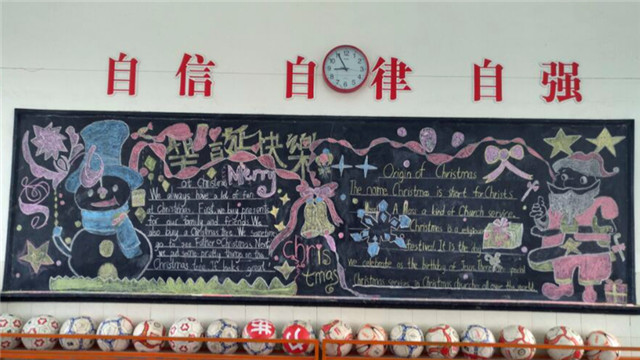 自信 自律 自强
圣诞快樂
Merry
Christmas
At Christm
We always have a lot of fun
at Christmas. First, we buy presents
for our family and friends. We
also buy a Christmas tree. We sometimes
go to see Father Christmas. Next
we put some pretty things on the
Christmas tree. It looks great
Origin of Christmas
The name Christmas is short for Christ's
Mass. A Mass a kind of Church service.
Christmas is a religious
festival! It is the day
we celebrate as the birthday of Jesus. special
Christmas service in Christian churches all over the world